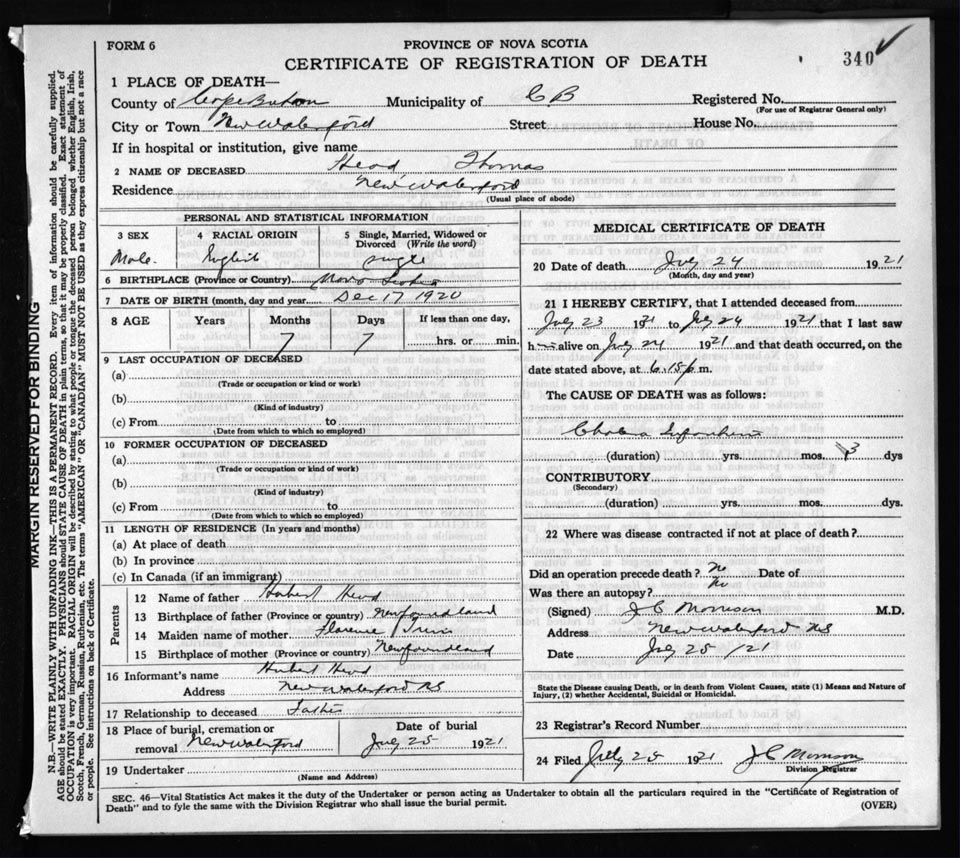 FORM 6
PROVINCE OF NOVA SCOTIA
CERTIFICATE OF REGISTRATION OF DEATH
340
1 PLACE OF DEATH—
County of Cape Breton Municipality of C B Registered No.
(For use of Registrar General only)
City or Town New Waterford Street House No.
If in hospital or institution, give name
2 NAME OF DECEASED Head Thomas
Residence New Waterford
(Usual place of abode)
PERSONAL AND STATISTICAL INFORMATION
3 SEX 4 RACIAL ORIGIN 5 Single, Married, Widowed or Divorced (Write the word)
Male. English single
6 BIRTHPLACE (Province or Country) Nova Scotia
7 DATE OF BIRTH (month, day and year) Dec 17 1920
8 AGE Years Months Days If less than one day,
7 7 hrs. or min.
9 LAST OCCUPATION OF DECEASED
(a)
(Trade or occupation or kind or work)
(b)
(Kind of industry)
(c) From to
(Date from which to which so employed)
10 FORMER OCCUPATION OF DECEASED
(a)
(Trade or occupation or kind or work)
(b)
(Kind of industry)
(c) From to
(Date from which to which so employed)
11 LENGTH OF RESIDENCE (In years and months)
(a) At place of death
(b) In province
(c) In Canada (if an immigrant)
Parents
12 Name of father Hubert Head
13 Birthplace of father (Province or country) Newfoundland
14 Maiden name of mother Florence
15 Birthplace of mother (Province or country) Newfoundland
16 Informant's name Hubert Head
Address New Waterford NS
17 Relationship to deceased Father
18 Place of burial, cremation or removal New Waterford
Date of burial
July 25 1921
19 Undertaker
(Name and Address)
MEDICAL CERTIFICATE OF DEATH
20 Date of death July 24 1921
(Month, day and year)
21 I HEREBY CERTIFY, that I attended deceased from
July 23 1921 to July 24 1921 that I last saw
h alive on July 24 1921 and that death occurred, on the
date stated above, at 6.15 p m.
The CAUSE OF DEATH was as follows:
Cholera Infantum
(duration) yrs. mos. 3 dys
CONTRIBUTORY
(Secondary)
(duration) yrs. mos. dys.
22 Where was disease contracted if not at place of death?
Did an operation precede death? No Date of
Was there an autopsy? No
(Signed) J C Morrison M.D.
Address New Waterford NS
Date July 25 /21
State the Disease causing Death, or in death from Violent Causes, state (1) Means and Nature of
Injury, (2) whether Accidental, Suicidal or Homicidal.
23 Registrar's Record Number
24 Filed July 25 1921 J C Morrison
Division Registrar
SEC. 46—Vital Statistics Act makes it the duty of the Undertaker or person acting as Undertaker to obtain all the particulars required in the "Certificate of Registration of
Death" and to fyle the same with the Division Registrar who shall issue the burial permit.
(OVER)
MARGIN RESERVED FOR BINDING
N.B.—WRITE PLAINLY WITH UNFADING INK—THIS IS A PERMANENT RECORD. Every item of information should be carefully supplied.
AGE should be stated EXACTLY. PHYSICIANS should STATE CAUSE OF DEATH in plain terms, so that it may be properly classified. Exact statement of
OCCUPATION is very important. RACIAL ORIGIN will be described by stating to what people or tongue the deceased person belonged, whether English, Irish,
Scotch, French, German, Russian, Ruthenian, etc. The terms "AMERICAN" OR "CANADIAN" MUST NOT BE USED as they express citizenship but not a race
or people. See instructions on back of Certificate.